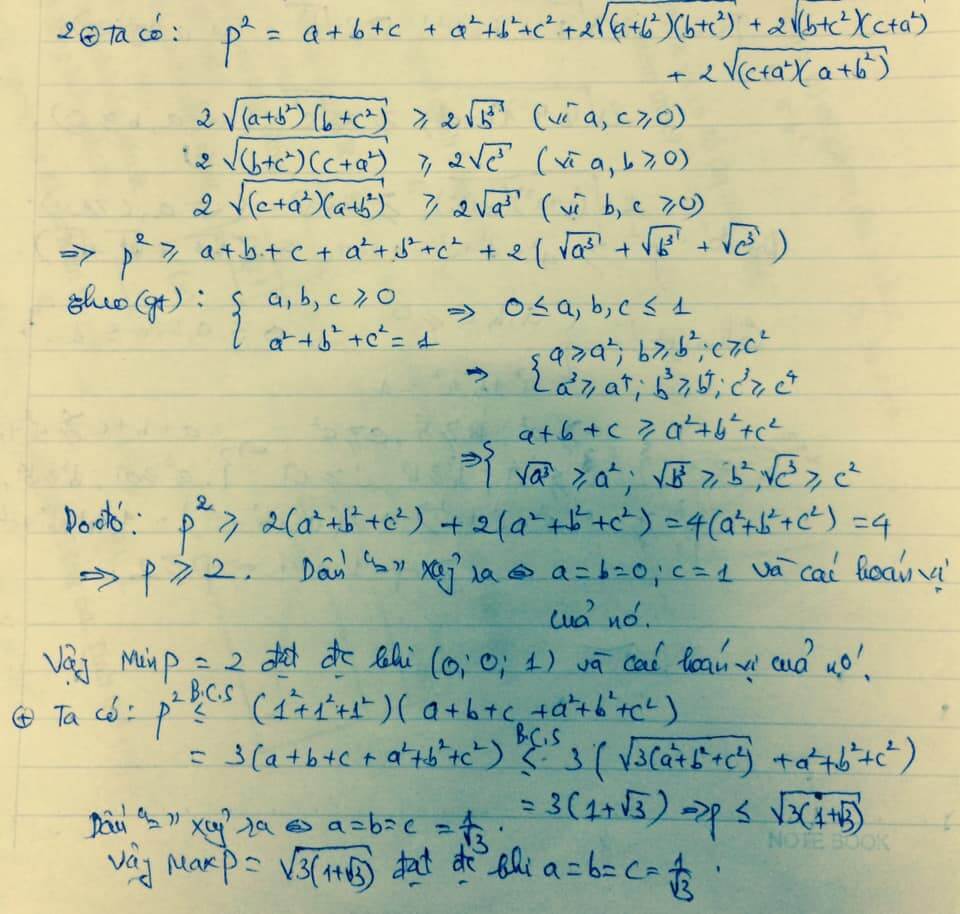 2 ⊕ Ta có: p² = a+b+c + a²+b²+c² + 2√(a+b²)(b+c²) + 2√(b+c²)(c+a²)
+ 2√(c+a²)(a+b²)
2√(a+b²)(b+c²) ≥ 2√b³ (vì a, c ≥ 0)
2√(b+c²)(c+a²) ≥ 2√c³ (vì a, b ≥ 0)
2√(c+a²)(a+b²) ≥ 2√a³ (vì b, c ≥ 0)
⇒ p² ≥ a+b+c + a²+b²+c² + 2(√a³ + √b³ + √c³)
Theo (gt): { a, b, c ≥ 0 ⇒ 0 ≤ a, b, c ≤ 1
a²+b²+c² = 1
⇒ { a ≥ a²; b ≥ b²; c ≥ c²
a³ ≥ a⁴; b³ ≥ b⁴; c³ ≥ c⁴
⇒ { a+b+c ≥ a²+b²+c²
√a³ ≥ a²; √b³ ≥ b², √c³ ≥ c²
Do đó: p² ≥ 2(a²+b²+c²) + 2(a²+b²+c²) = 4(a²+b²+c²) = 4
⇒ p ≥ 2. Dấu "=" xảy ra ⇔ a=b=0; c=1 và các hoán vị
của nó.
Vậy Min p = 2 đạt đc khi (0; 0; 1) và các hoán vị của nó!
⊕ Ta có: p² B.C.S ≤ (1²+1²+1²)(a+b+c+a²+b²+c²)
= 3(a+b+c+a²+b²+c²) B.C.S ≤ 3(√3(a²+b²+c²) + a²+b²+c²)
= 3(1+√3) ⇒ p ≤ √3(1+√3)
Dấu "=" xảy ra ⇔ a=b=c = 1/√3.
Vậy Max p = √3(1+√3) đạt đc khi a=b=c=1/√3.
NOTE BOOK